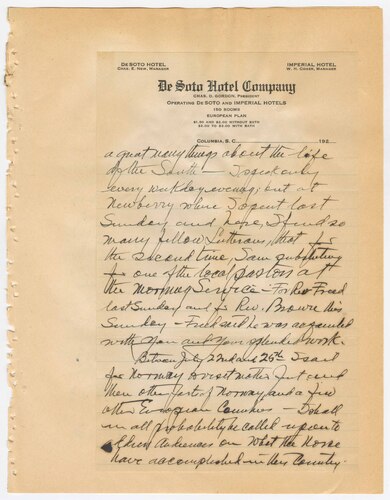 DE SOTO HOTEL
CHAS. E. NEW, MANAGER
IMPERIAL HOTEL
W. H. COKER, MANAGER
De Soto Hotel Company
CHAS. C. GORDON, PRESIDENT
OPERATING DE SOTO AND IMPERIAL HOTELS
150 ROOMS
EUROPEAN PLAN
$1.50 AND $2.00 WITHOUT BATH
$2.00 TO $3.00 WITH BATH
COLUMBIA, S. C. 192
a great many things about the life
of the South — I speak only
every weekday evening; but at
Newberry where I spent last
Sunday and here, I find so
many fellow Lutherans, that for
the second time, I am substituting
for one of the local pastors at
the morning Service — For Rev. Freed
last Sunday and for Rev. Brown this
Sunday — Freed said he was acquainted
with you and your splendid work.
Between July 22nd and 25th I sail
for Norway to visit mother first and
then other parts of Norway and a few
other European Countries — I shall
in all probability be called upon to
address audiences on What the Norse
have accomplished in this Country.